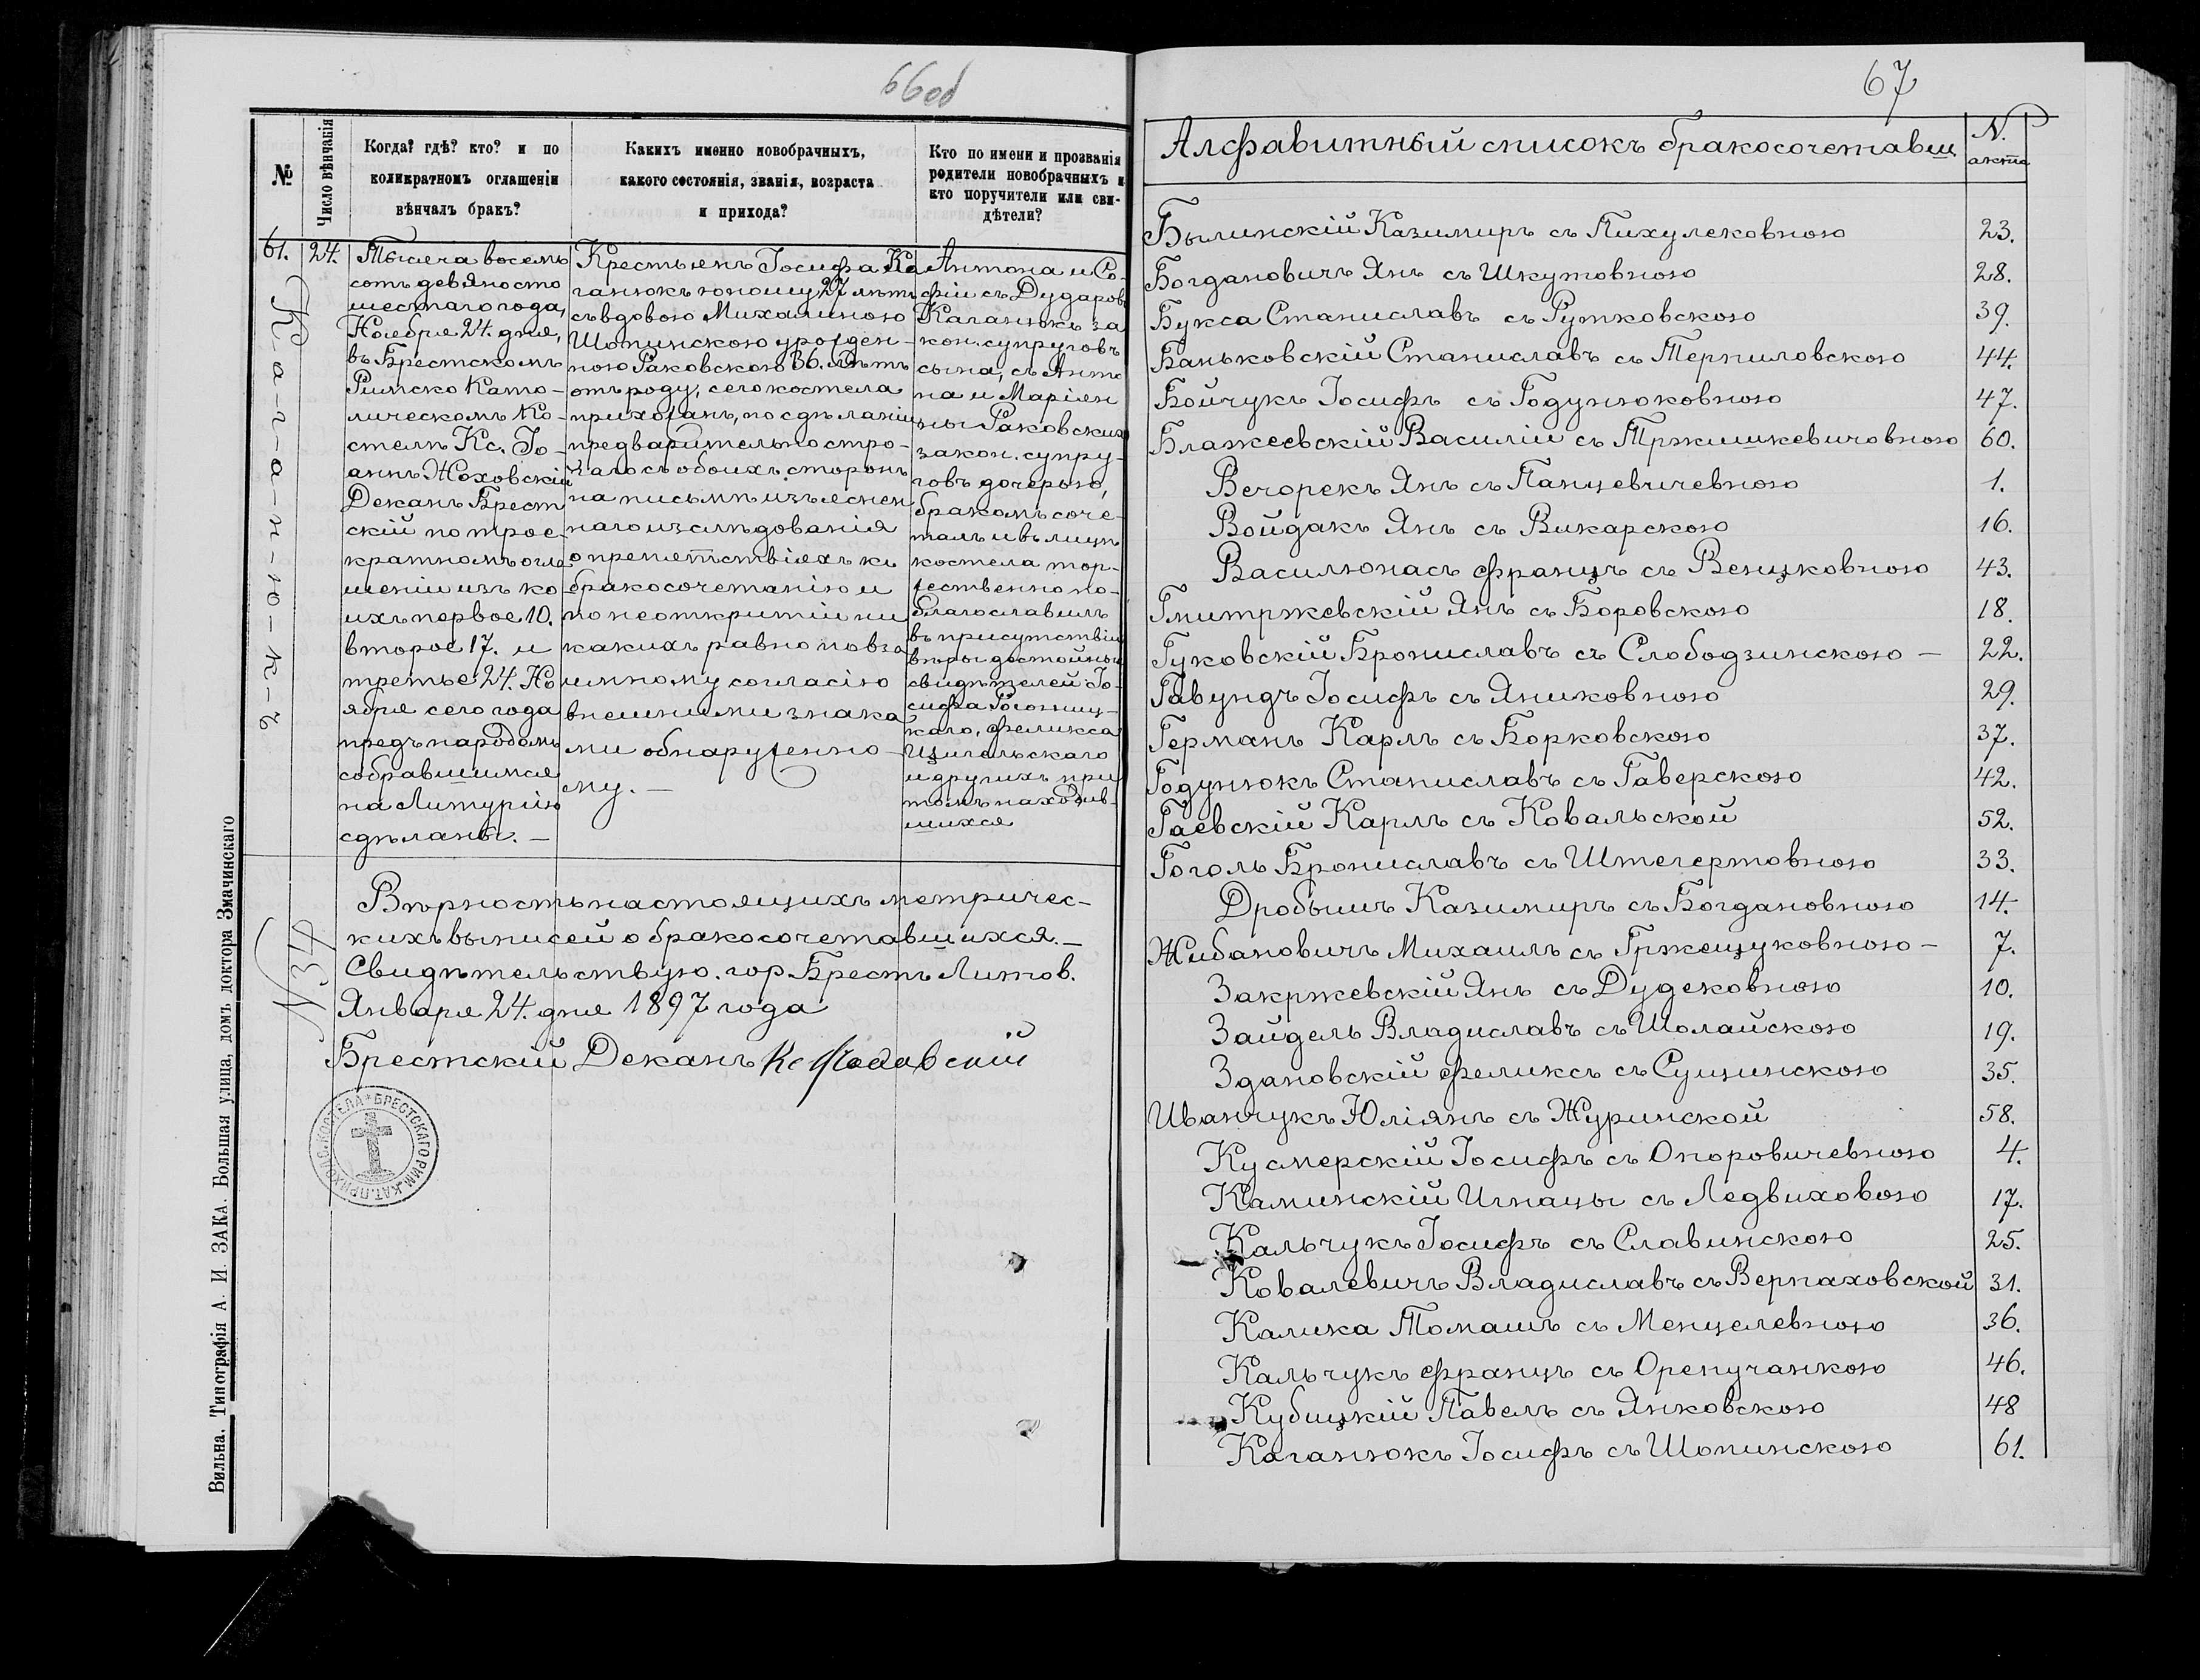 66об
№
Число вѣнчанія
Когда? гдѣ? кто? и по
коликратномъ оглашеніи
вѣнчалъ бракъ?
Какихъ именно новобрачныхъ,
какого состоянія, званія, возраста
и прихода?
Кто по имени и прозванія
родители новобрачныхъ и
кто поручители или сви-
дѣтели?
61.
24.
К-а-г-а-н-ю-к-ъ
Тысяча восемь
сотъ девяносто
шестаго года,
Ноября 24. дня,
въ Брестскомъ
Римско Като-
лическомъ Ко-
стелѣ Кс. Іо-
аннъ Жоховскій
Деканъ Брест
скій по трое-
кратномъ огла-
шеніи изъ ко
ихъ первое 10.
второе 17. и
третье 24. Но
ября сего года
предъ народомъ
собравшимся
на Литургію
сдѣланы. —
Крестьянъ Іосифа Ка
ганюкъ юношу 27 лѣтъ
съ вдовою Михалиною
Шопинскою урожден-
ною Раковскою 36. лѣтъ
отъ роду, сего костела
прихожанъ, по сдѣланіи
предварительно стро-
гаго съ обоихъ сторонъ
на письмѣ изъяснен
наго изслѣдованія
о препятствіяхъ къ
бракосочетанію и
по неоткрытіи ни
какихъ равно по вза
имному согласію
внешними знака
ми обнаруженно-
му. —
Антона и Со-
фіи съ Дударовъ
Каганюкъ за
кон. супруговъ
сына, съ Анто
на и Маріян
ны Раковскихъ
закон. супру-
говъ дочерью,
бракомъ соче-
талъ и въ лицѣ
костела тор-
жественно по-
благославилъ
въ присутствіи
вѣры достойныхъ
свидѣтелей Іо-
сифа
каго, Феликса
Цигальскаго
и другихъ при
томъ находив-
шихся
N 34
Вѣрность настоящихъ метричес-
кихъ выписей о бракосочетавшихся. —
Свидѣтельствую. гор. Брестъ Литов.
Января 24. дня 1897 года
Брестскій Деканъ Кс Жоховскій
БРЕСТСКАГО РИМ. КАТ. ПРИХОДС. КОСТЕЛА
Вильна. Типографія А. И. ЗАКА. Большая улица, домъ доктора Змачинскаго
67
Алфавитный списокъ бракосочетавш
N.
акта
Былинскій Казимиръ съ Пихулековною 23.
Богдановичъ Янъ съ Шкутовною 28.
Букса Станиславъ съ Рутковскою 39.
Баньковскій Станиславъ съ Терпиловскою 44.
Бойчукъ Іосифъ съ Годунюковною 47.
Блажеевскій Василіи съ Тржишкевичовною 60.
Вечорекъ Янъ съ Панцевичевною 1.
Войдакъ Янъ съ Викарскою 16.
Васильонасъ Францъ съ Венцковною 43.
Гмитржевскій Янъ съ Боровскою 18.
Гуковскій Брониславъ съ Слободзинскою — 22.
Гавундъ Іосифъ съ Яниковною 29.
Германъ Карлъ съ Борковскою 37.
Годунюкъ Станиславъ съ Гаверскою 42.
Гаевскій Карлъ съ Ковальской 52.
Гоголь Брониславъ съ Штегертовною 33.
Дробышъ Казимиръ съ Богдановною 14.
Жибановичъ Михаилъ съ Гржещуковною — 7.
Закржевскій Янъ съ Дудековною 10.
Зайдель Владиславъ съ Шолайскою 19.
Здановскій Феликсъ съ Сущинскою 35.
Иванчукъ Юліянъ съ Журинской 58.
Кусмерскій Іосифъ съ Опоровичевною 4.
Каминскій Игнацы съ Ледвиховою 17.
Кальчукъ Іосифъ съ Славинскою 25.
Ковалевичъ Владиславъ съ Верпаховской 31.
Калика Томашъ съ Менцелевною 36.
Кальчукъ Францъ съ Орепучанкою 46.
Кубицкій Павелъ съ Янковскою 48
Каганюкъ Іосифъ съ Шопинскою 61.